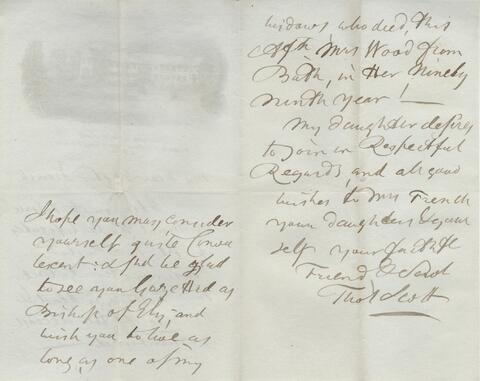 I hope you may consider
yourself quite Conva
lescent: I shd be glad
to see your Gazetted as
Bishop of Ely, and
wish you to live as
long, as one of my
widows, who died, this
Mrs Wood from
Bath, in Her Ninety
ninth year! —
My daughter desires
to join in Respectful
Regards, and all good
wishes to Mrs French
your daughters & your
self your faithful
Friend & Servt
Thos Scott